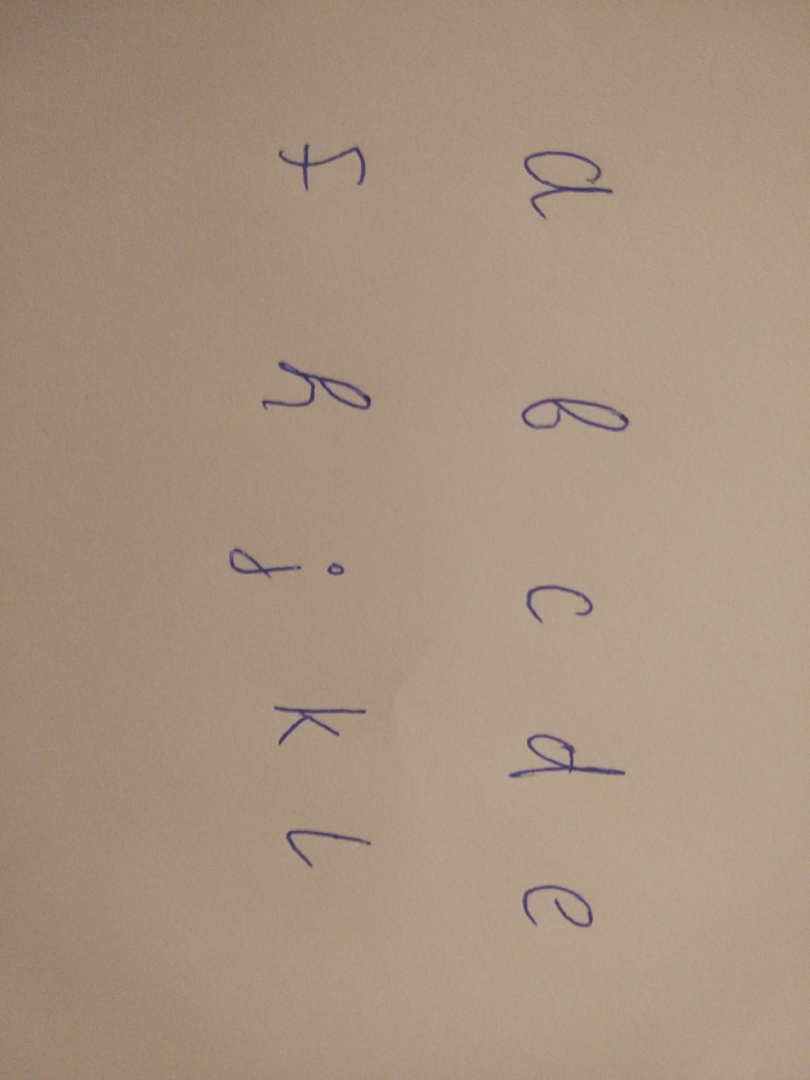 a b c d e
f h j k l